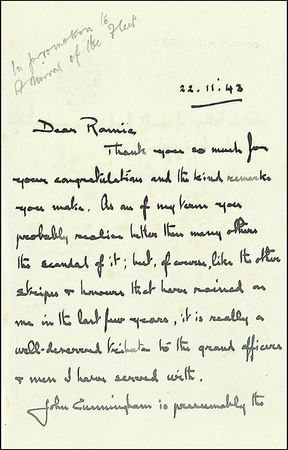 In promotion to
Admiral of the Fleet
22.11.43
Dear Ramie
Thank you so much for
your congratulations and the kind remarks
you make. As an of my term you
probably realise better than many others
the scandal of it; but, of course, like the other
stripes & honours that have rained on
me in the last few years, it is really a
well-deserved tribute to the grand officers
& men I have served with.
John Cunningham is presumably the